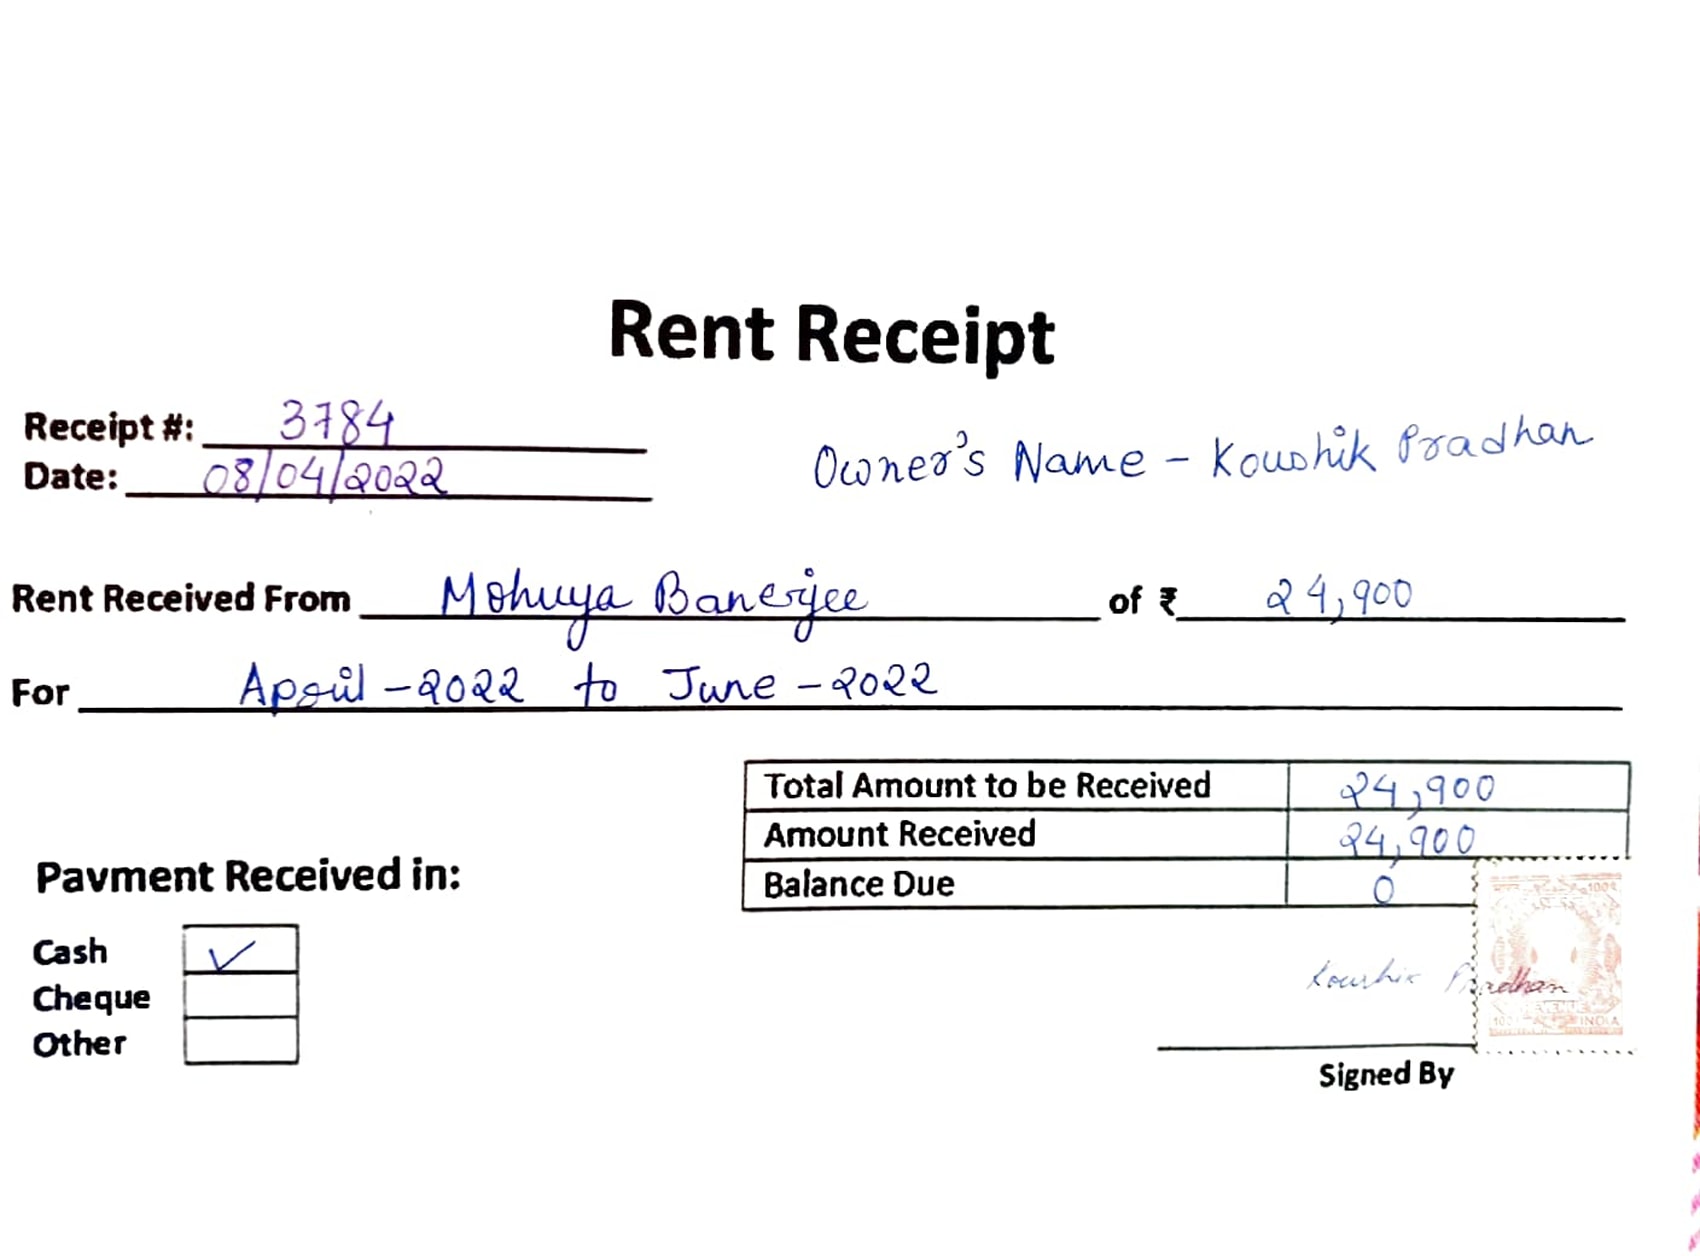 Rent Receipt
Receipt #: 3784
Owner's Name - Koushik Pradhan
Date: 08/04/2022
Rent Received From Mohuya Banerjee of ₹ 24,900
For April - 2022 to June - 2022
Total Amount to be Received 24,900
Amount Received 24,900
Balance Due 0
Payment Received in:
Cash ✓
Cheque
Other
Koushik Pradhan
INDIA
Signed By